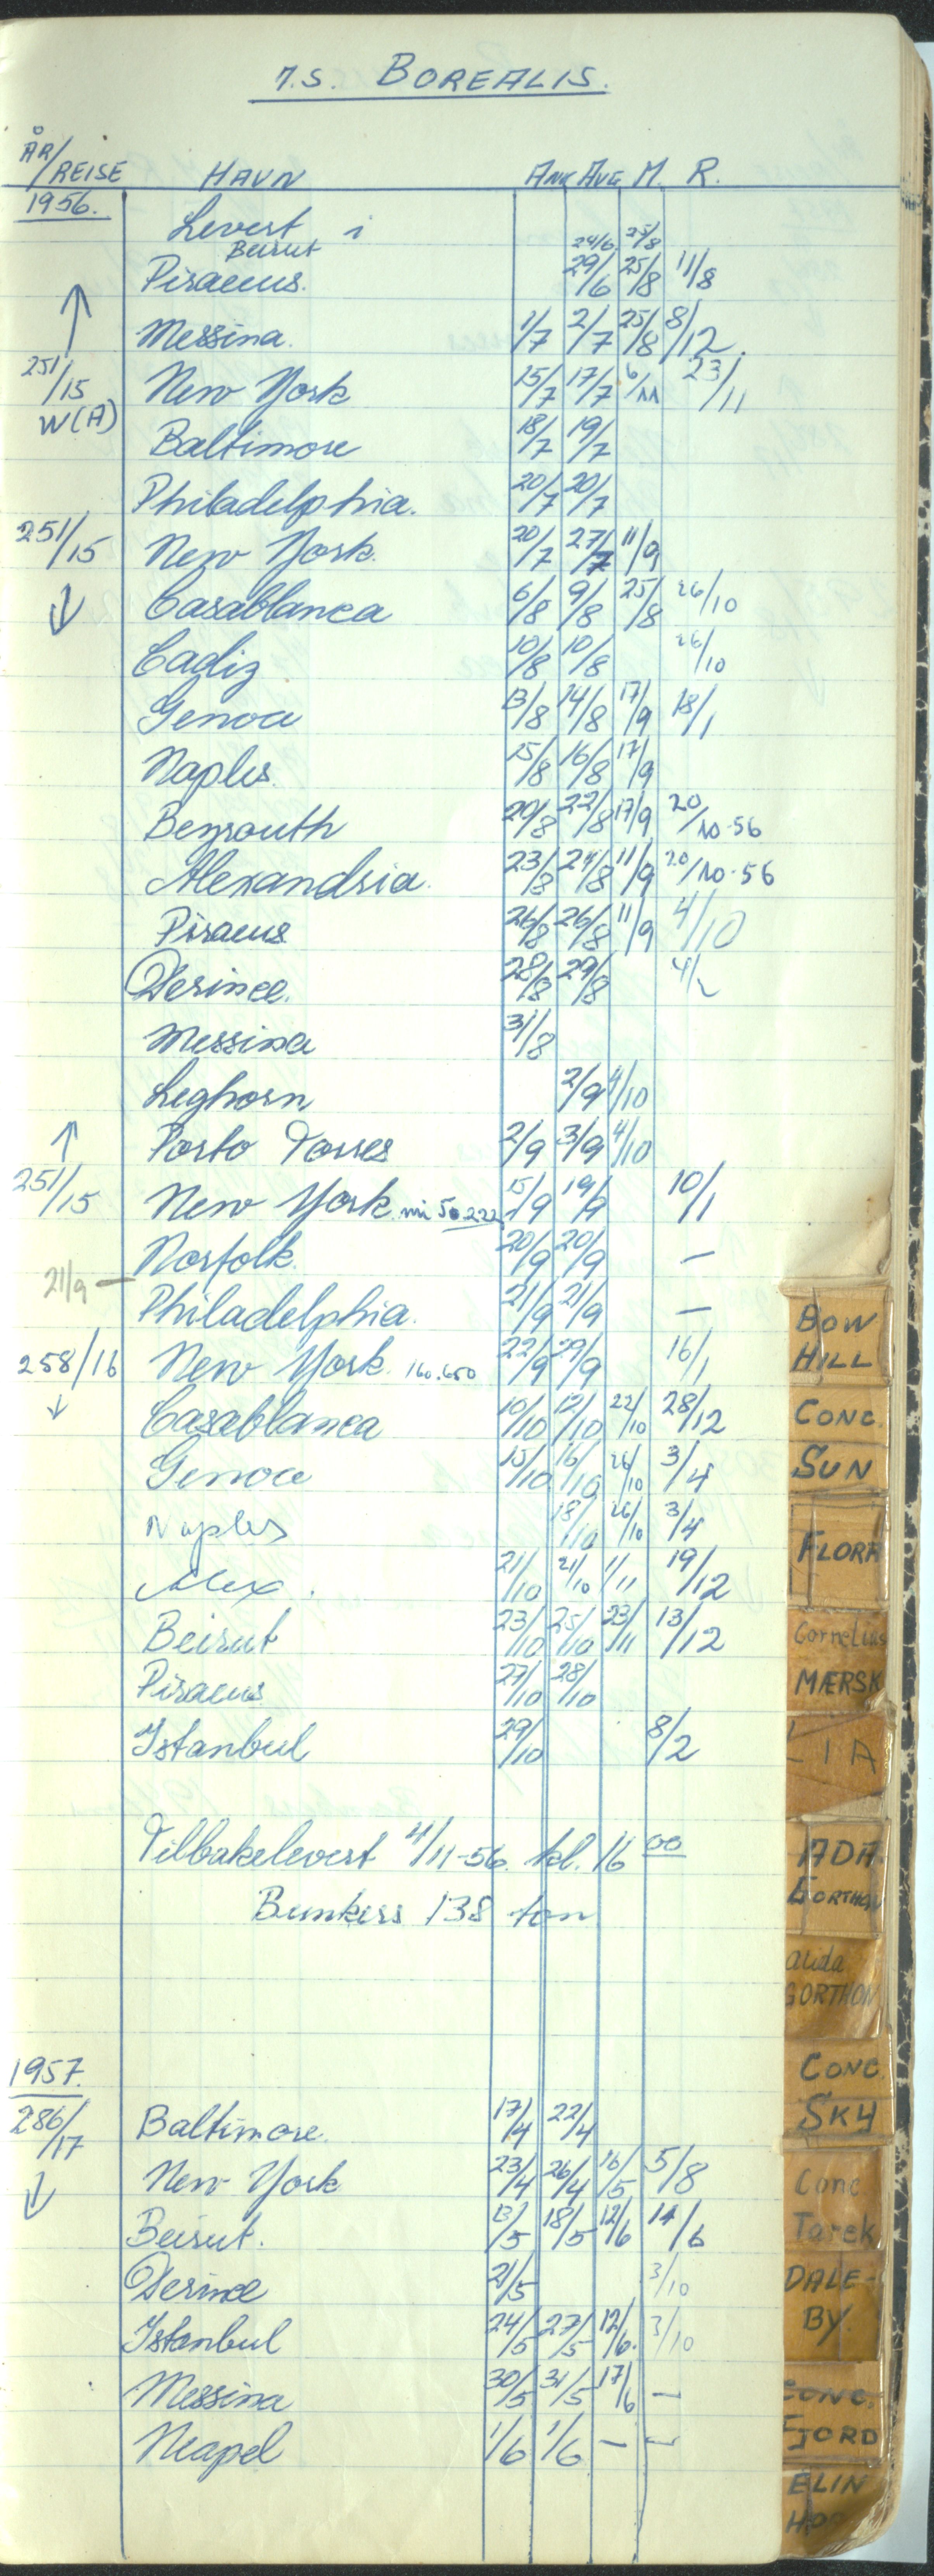 M.S. BOREALIS.
ÅR/REISE HAVN ANK AVG M. R.
1956.
Levert i
Beirut 24/6 25/8
Piraeus. 29/6 25/8 11/8
↑ Messina. 1/7 2/7 25/8 8/12.
251/15 New York 15/7 17/7 6/11 23/11
W(A)
Baltimore 18/7 19/7
Philadelphia. 20/7 20/7
251/15 New York. 20/7 27/7 11/9
↓ Casablanca 6/8 9/8 25/8 26/10
Cadiz 10/8 10/8 26/10
Genoa 13/8 14/8 17/9 18/1
Naples. 15/8 16/8 17/9
Beyrouth 20/8 22/8 17/9 20/10-56
Alexandria. 23/8 24/8 11/9 20/10-56
Piraeus 26/8 26/8 11/9 4/10
Derince. 28/8 29/8 4/2
Messina 31/8
Leghorn 2/9 4/10
↑ Porto Torres 2/9 3/9 4/10
251/15 New York 15/9 19/9 10/1
Norfolk. 20/9 20/9 —
21/9 —
Philadelphia. 21/9 21/9 —
258/16 New York. 160.650 22/9 29/9 16/1
↓ Casablanca 10/10 12/10 22/10 28/12
Genoa 15/10 16/10 26/10 3/4
Naples 18/10 26/10 3/4
Alex. 21/10 21/10 1/11 19/12
Beirut 23/10 25/10 23/11 13/12
Piraeus 27/10 28/10
Istanbul 29/10 8/2
Tilbakelevert 4/11-56. kl. 16 00
Bunkers 138 ton
1957.
286/17 Baltimore. 17/4 22/4
↓ New York 23/4 26/4 16/5 5/8
Beirut. 13/5 18/5 12/6 14/6
Derince 21/5 3/10
Istanbul 24/5 27/5 12/6. 3/10
Messina 30/5 31/5 17/6 —
Neapel 1/6 1/6 — —
BOW
HILL
CONC.
SUN
FLORA
Cornelius
MÆRSK
LIA
GORTHON
Alida
GORTHON
CONC.
SKY
Conc
Tarek
DALE-
BY.
CONC.
FJORD
ELIN